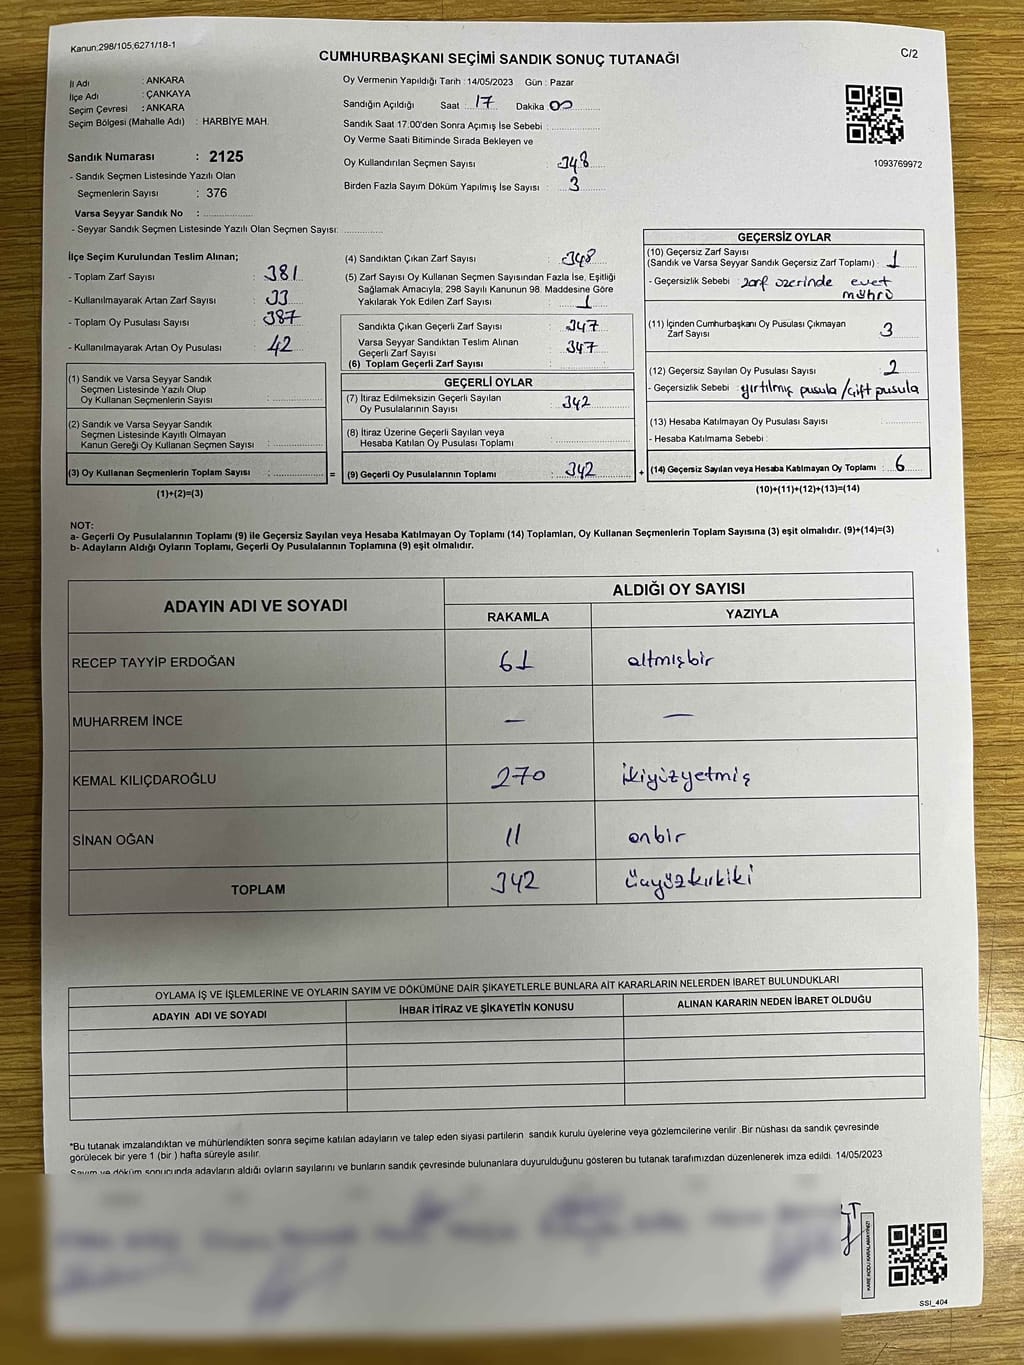 Kanun;298/105,6271/18-1
CUMHURBAŞKANI SEÇİMİ SANDIK SONUÇ TUTANAĞI
C/2
İl Adı : ANKARA
İlçe Adı : ÇANKAYA
Seçim Çevresi : ANKARA
Seçim Bölgesi (Mahalle Adı) : HARBİYE MAH.
Sandık Numarası : 2125
- Sandık Seçmen Listesinde Yazılı Olan
Seçmenlerin Sayısı : 376
Varsa Seyyar Sandık No : ................
- Seyyar Sandık Seçmen Listesinde Yazılı Olan Seçmen Sayısı: .............
Oy Vermenin Yapıldığı Tarih : 14/05/2023 Gün : Pazar
Sandığın Açıldığı Saat : 17 Dakika 00
Sandık Saat 17.00'den Sonra Açımış İse Sebebi : ................
Oy Verme Saati Bitiminde Sırada Bekleyen ve
Oy Kullandırılan Seçmen Sayısı : 348
Birden Fazla Sayım Döküm Yapılmış İse Sayısı : 3
1093769972
İlçe Seçim Kurulundan Teslim Alınan;
- Toplam Zarf Sayısı : 381
- Kullanılmayarak Artan Zarf Sayısı : 33
- Toplam Oy Pusulası Sayısı : 387
- Kullanılmayarak Artan Oy Pusulası : 42
(1) Sandık ve Varsa Seyyar Sandık
Seçmen Listesinde Yazılı Olup
Oy Kullanan Seçmenlerin Sayısı :
(2) Sandık ve Varsa Seyyar Sandık
Seçmen Listesinde Kayıtlı Olmayan
Kanun Gereği Oy Kullanan Seçmen Sayısı :
(3) Oy Kullanan Seçmenlerin Toplam Sayısı :
=
(1)+(2)=(3)
(4) Sandıktan Çıkan Zarf Sayısı : 348
(5) Zarf Sayısı Oy Kullanan Seçmen Sayısından Fazla İse, Eşitliği
Sağlamak Amacıyla; 298 Sayılı Kanunun 98. Maddesine Göre
Yakılarak Yok Edilen Zarf Sayısı : 1
Sandıkta Çıkan Geçerli Zarf Sayısı : 347
Varsa Seyyar Sandıktan Teslim Alınan
Geçerli Zarf Sayısı : 347
(6) Toplam Geçerli Zarf Sayısı
GEÇERLİ OYLAR
(7) İtiraz Edilmeksizin Geçerli Sayılan
Oy Pusulalarının Sayısı : 342
(8) İtiraz Üzerine Geçerli Sayılan veya
Hesaba Katılan Oy Pusulası Toplamı :
(9) Geçerli Oy Pusulalarının Toplamı : 342
+
GEÇERSİZ OYLAR
(10) Geçersiz Zarf Sayısı
(Sandık ve Varsa Seyyar Sandık Geçersiz Zarf Toplamı) : 1
- Geçersizlik Sebebi : zarf üzerinde evet
mührü
(11) İçinden Cumhurbaşkanı Oy Pusulası Çıkmayan
Zarf Sayısı 3
(12) Geçersiz Sayılan Oy Pusulası Sayısı : 2
- Geçersizlik Sebebi : yırtılmış pusula / Çift pusula
(13) Hesaba Katılmayan Oy Pusulası Sayısı :
- Hesaba Katılmama Sebebi :
(14) Geçersiz Sayılan veya Hesaba Katılmayan Oy Toplamı : 6
(10)+(11)+(12)+(13)=(14)
NOT:
a- Geçerli Oy Pusulalarının Toplamı (9) ile Geçersiz Sayılan veya Hesaba Katılmayan Oy Toplamı (14) Toplamları, Oy Kullanan Seçmenlerin Toplam Sayısına (3) eşit olmalıdır. (9)+(14)=(3)
b- Adayların Aldığı Oyların Toplamı, Geçerli Oy Pusulalarının Toplamına (9) eşit olmalıdır.
ADAYIN ADI VE SOYADI
ALDIĞI OY SAYISI
RAKAMLA YAZIYLA
RECEP TAYYİP ERDOĞAN 61 altmışbir
MUHARREM İNCE — —
KEMAL KILIÇDAROĞLU 270 ikiyüzyetmiş
SİNAN OĞAN 11 onbir
TOPLAM 342 üçyüzkırkiki
OYLAMA İŞ VE İŞLEMLERİNE VE OYLARIN SAYIM VE DÖKÜMÜNE DAİR ŞİKAYETLERLE BUNLARA AİT KARARLARIN NELERDEN İBARET BULUNDUKLARI
ADAYIN ADI VE SOYADI İHBAR İTİRAZ VE ŞİKAYETİN KONUSU ALINAN KARARIN NEDEN İBARET OLDUĞU
*Bu tutanak imzalandıktan ve mühürlendikten sonra seçime katılan adayların ve talep eden siyasi partilerin sandık kurulu üyelerine veya gözlemcilerine verilir .Bir nüshası da sandık çevresinde
görülecek bir yere 1 (bir ) hafta süreyle asılır.
Sayım ve döküm sonucunda adayların aldığı oyların sayılarını ve bunların sandık çevresinde bulunanlara duyurulduğunu gösteren bu tutanak tarafımızdan düzenlenerek imza edildi. 14/05/2023
KARE KODU KARALAMAYINIZ!
SSI_404